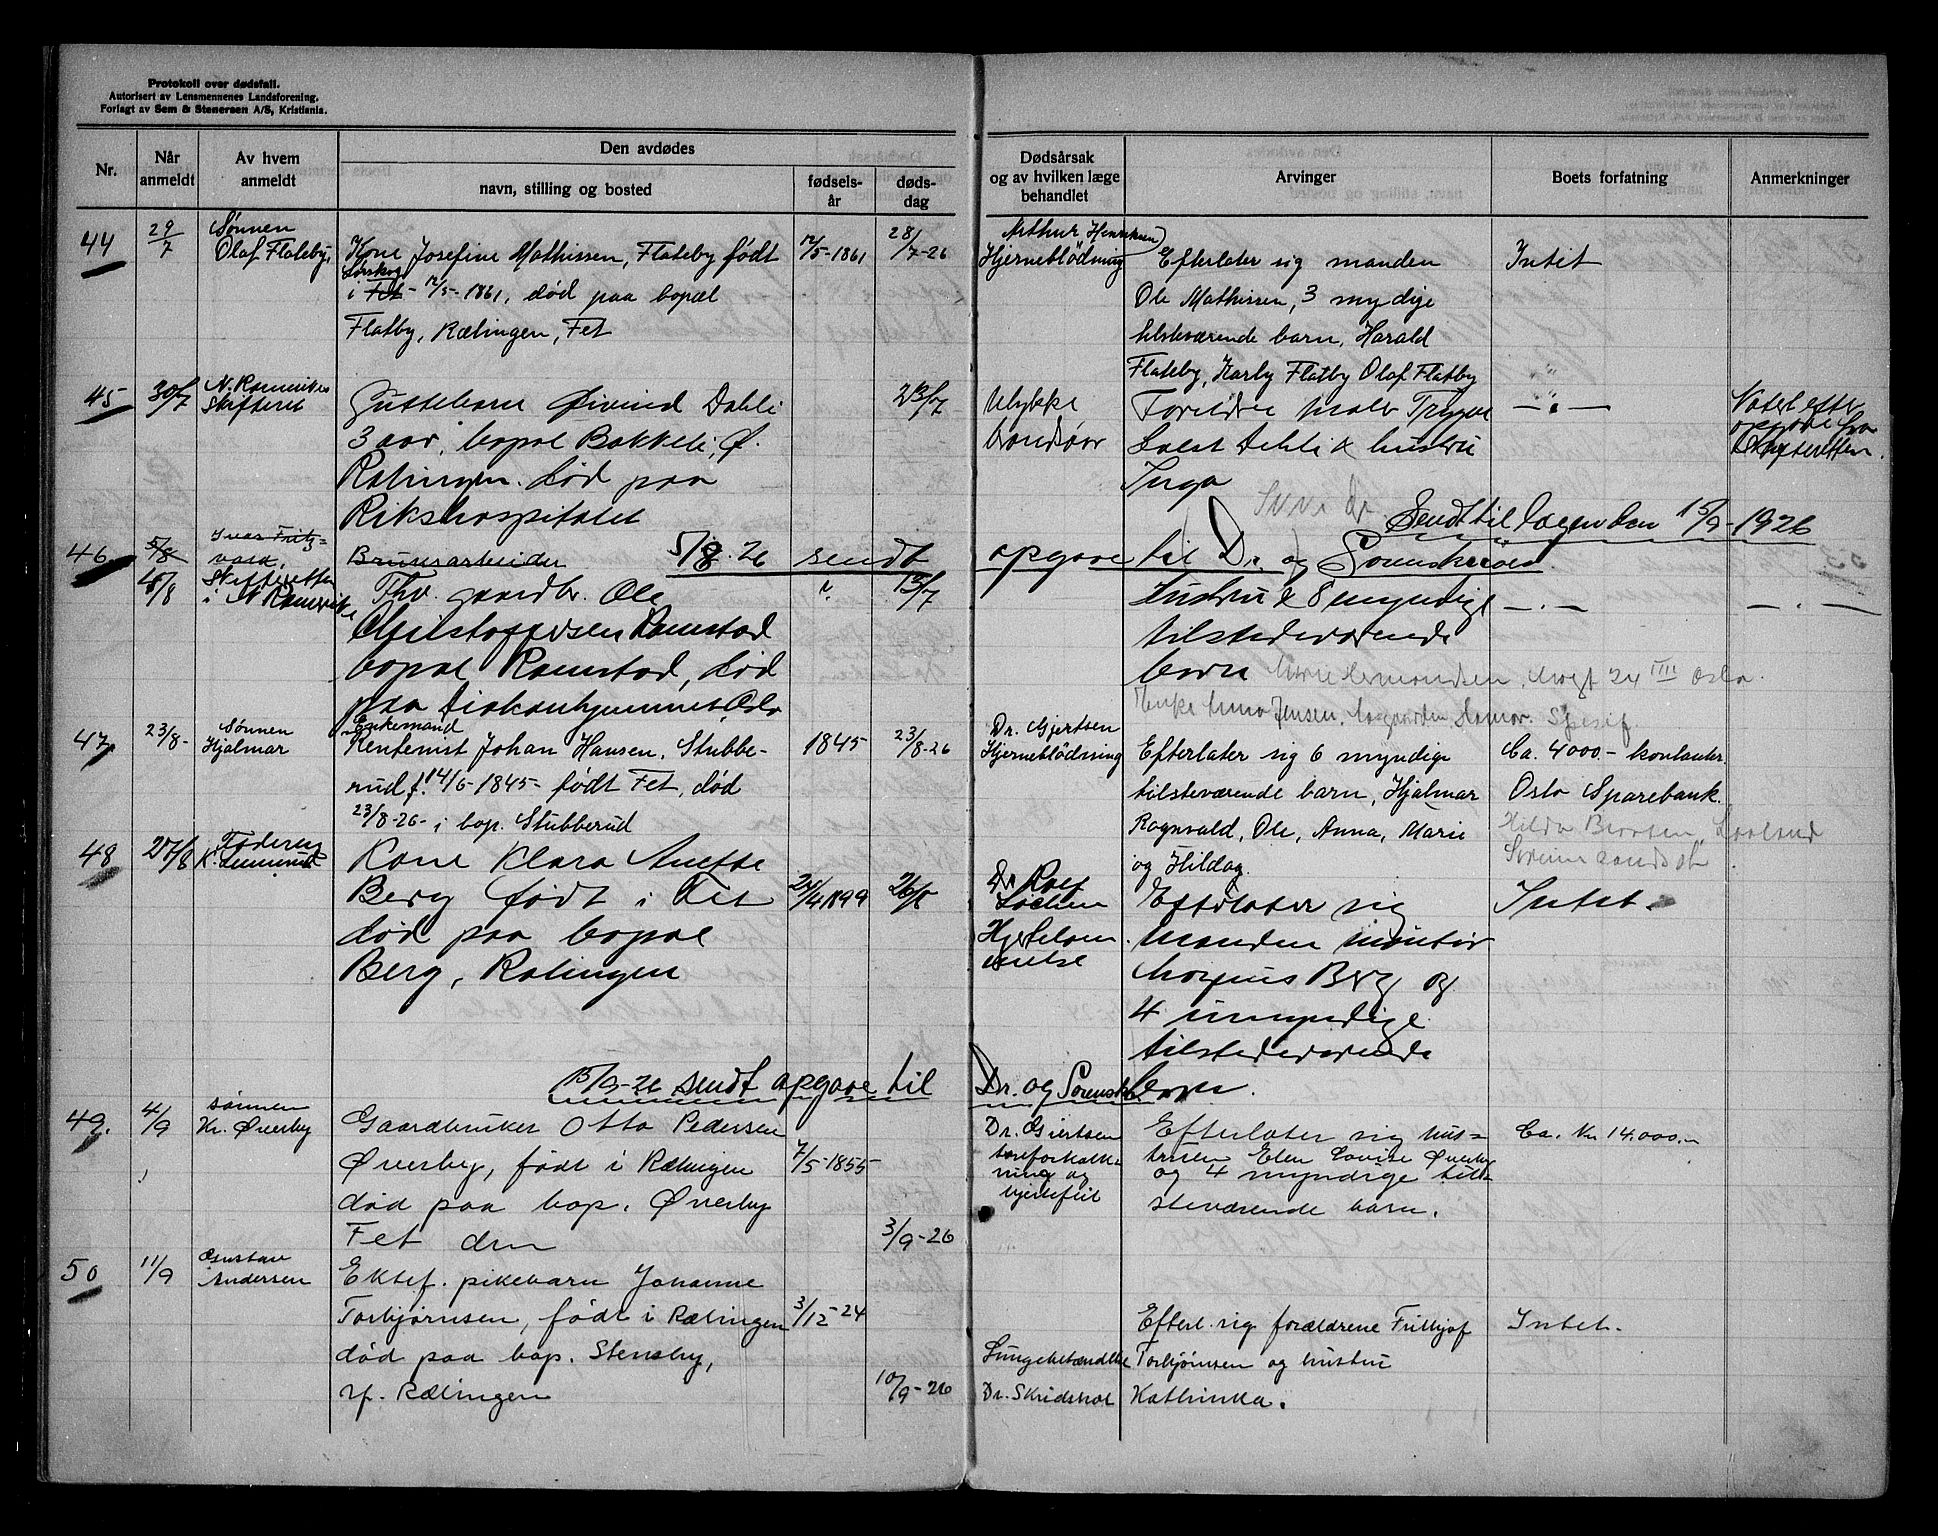 Protokoll over dødsfall.
Autorisert av Lensmennenes Landsforening.
Forlagt av Sem & Stenersen A/S, Kristiania.
Nr.
Når anmeldt
Av hvem anmeldt
Den avdødes
navn, stilling og bosted
fødsels-
år
døds-
dag
Dødsårsak
og av hvilken læge
behandlet
Arvinger
Boets forfatning
Anmerkninger
44
29/7
Sønnen
Olaf Flateby,
Kone Josefine Mathissen, Flateby født
Lørskog
i Fet - 12/5-1861, død paa bopæl
Flatby, Rælingen, Fet
12/5-1861
28/7-26
Arthur Henriksen
Hjerneblödning
Efterlater sig manden
Ole Mathissen, 3 myndige
tilsteværende barn, Harald
Flateby, Karly Flatby Olaf Flatby
Intet
45
30/7
N. Romerikes
Skifteret
Guttebarn Øivind Dahli
3 aar, bopæl Bakkeli, Ø.
Rælingen. død paa
Rikshospitalet
23/7
Ulykke
brandsaar
Foreldre maler Trygve
Dehli & hustru
Inga
— " —
Notert efter
opgave fra
Skifteretten.
Sendt til Lægen den 15/9-1926
46
5/8
Ivar Fritz=
vold,
Brunsarbeider
5/8. 26 sendt opgave til Dr. og Sorenskriver
4/8
Skifteretten
i N Romerike
Fhv. gaardbr. Ole
Christoffersen Ramstad
bopæl Ramstad, død
paa Diakonhjemmet, Oslo
"
13/7
Hustru & 8 myndige
tilstedeværende
børn
— " —
— " —
Oslo
Enke Jensen,
47
23/8-
Sønnen
Hjalmar
Enkemand
Rentenist Johan Hansen, Stubbe-
rud f. 14/6-1845- født Fet, død
23/8-26- i bop. Stubberud
1845
23/8-26
Dr. Gjertsen
Hjerneblödning
Efterlater sig 6 myndige
tilsteværende barn, Hjalmar
Ragnvald, Ole, Anna, Marie
og Hilda
Ca. 4000.- kontanter
Oslo Sparebank.
Hilda
48
27/8
Kone Klara Anette
Berg født i Fet
død paa bopæl
Berg, Rælingen
24/4 1899
26/8
Dr. Rolf
Lochen
Efterlater sig
manden montør
Magnus Berg og
4 umyndige
tilstedeværende
børn.
Intet.
15/9-26 sendt opgave til Dr. og Sorenskr.
49.
4/9
Sønnen
Kr. Øverby
Gaardbruker Otto Pedersen
Øverby, født i Rælingen
død paa bop. Øverby
Fet den
7/5-1855
3/9-26
Dr. Gjertsen
aareforkalk-
ning og
hjertefeil
Efterlater sig hus-
truen Elen Lovise Øverby
og 4 myndige til-
steværende barn.
Ca. Kr 14.000.-
50
11/9
Gustav
Andersen
Ektef. pikebarn Johanne
Torbjørnsen, født i Rælingen
død paa bop. Stensby,
Y. Rælingen
3/12-24
10/9-26
Lungebetændelse
Dr. Skridshol
Efterl. sig forældrene Frithjof
Torbjørnsen og hustru
Kathinka.
Intet.